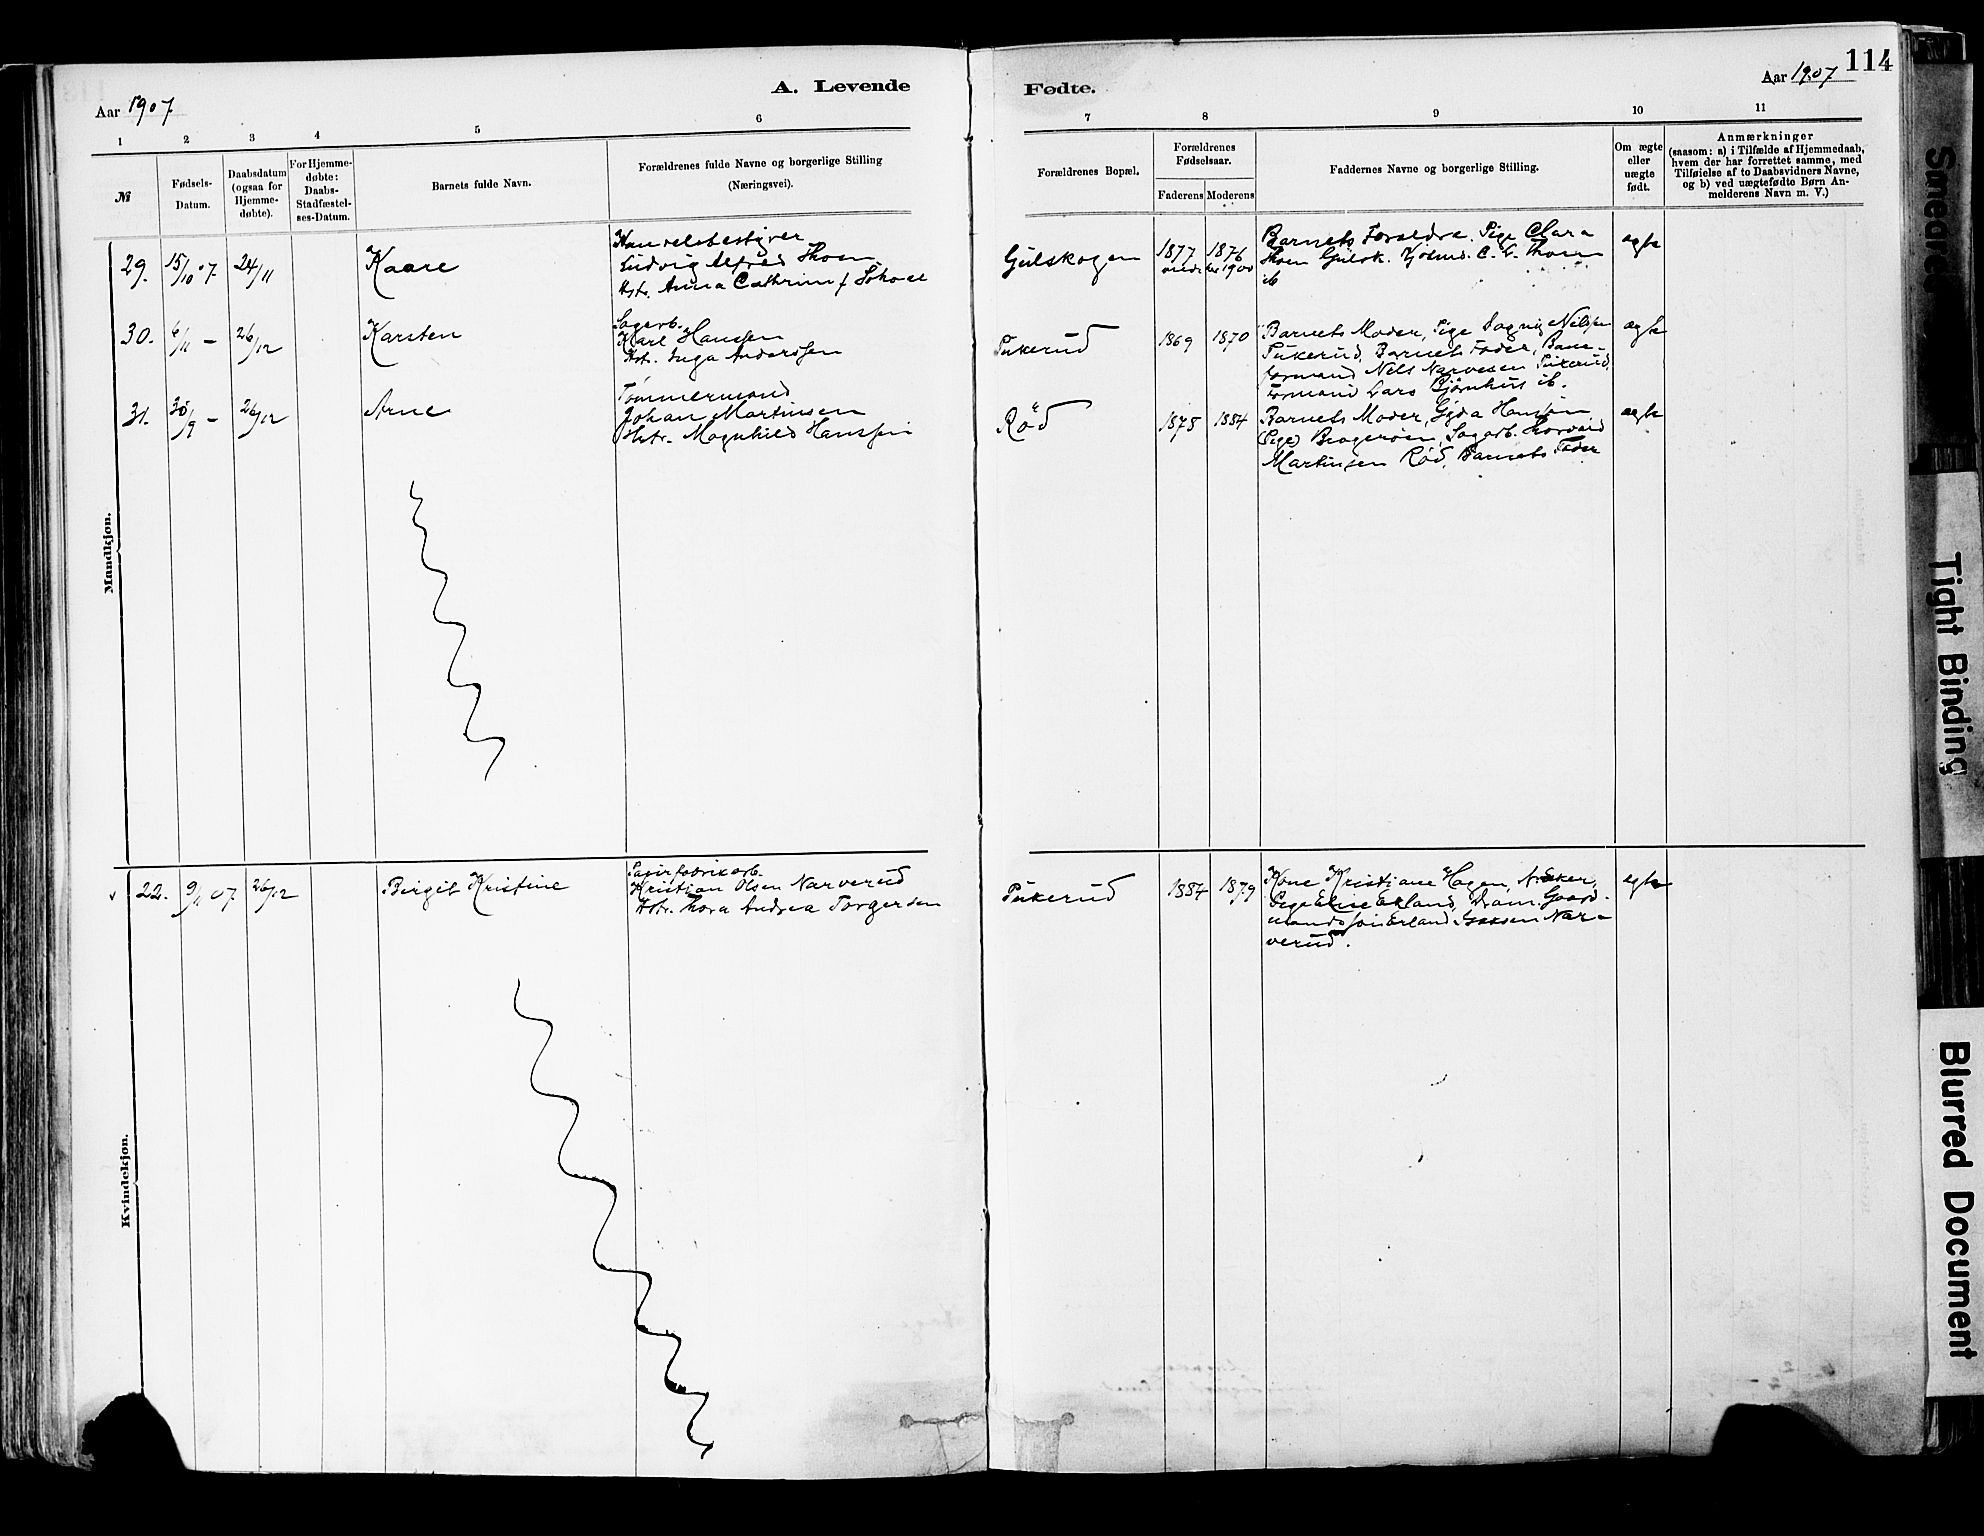 114
A. Levende
Fødte.
Aar 1907
Aar 1907
1 2 3 4 5 6
7 8 9 10 11
№
Fødsels-
Datum.
Daabsdatum
(ogsaa for
Hjemme-
døbte).
For Hjemme-
døbte:
Daabs-
Stadfæstel-
ses-Datum.
Barnets fulde Navn.
Forældrenes fulde Navne og borgerlige Stilling
(Næringsvei).
Forældrenes Bopæl.
Forældrenes
Fødselsaar.
Faderens Moderens
Faddernes Navne og borgerlige Stilling.
Om ægte
eller
uægte
født.
Anmærkninger
(saasom: a) i Tilfælde af Hjemmedaab,
hvem der har forrettet samme, med
Tilføielse af to Daabsvidners Navne,
og b) ved uægtefødte Børn An-
melderens Navn m. V.)
Mandkjøn.
29. 15/10 07 24/11
Kaare
Handelsbestyrer
Ludvig Alfred Thoen
Hstr. Anna Cathrine f.
Gulskogen
1877 1876
1900
Barnets Forældre, Pige Clara
Thoen Gulsk. C. V. Thoen
ib
ægte
30. 6/11 – 26/12
Karsten
Sagarb.
Karl Hanssen
Hstr. Inga Anderssen
Pukerud
1869 1870
Barnets Moder, Pige Dagny Nilssen
Pukerud, Barnets Fader, Bane-
formand Nels Narvesen Pukerud,
Formand Lars Bjørnhus ib.
ægte
31. 30/9 – 26/12
Arne
Tømmermand
Johan Martinsen
Hstr. Magnhild Hanssen
Rød
1878 1884
Barnets Moder, Gyda Hanssen
(Pige) Bragerøen, Sagarb. Thorvald
Martinsen Rød, Barnets Fader
ægte
Kvindekjøn.
22. 9/ 07 26/12
Birgit Kristine
Papirfabrikarb.
Kristian Olsen Narverud
Hstr. Thora Andrea Torgersen
Pukerud
1884 1879
Kone Kristiane Hagen, N. Eker,
Pige Eline Ekland, Dram. Gaard-
mandssøn Erland Isaksen Nar-
verud.
ægte
Smeared
Tight Binding
Blurred Document